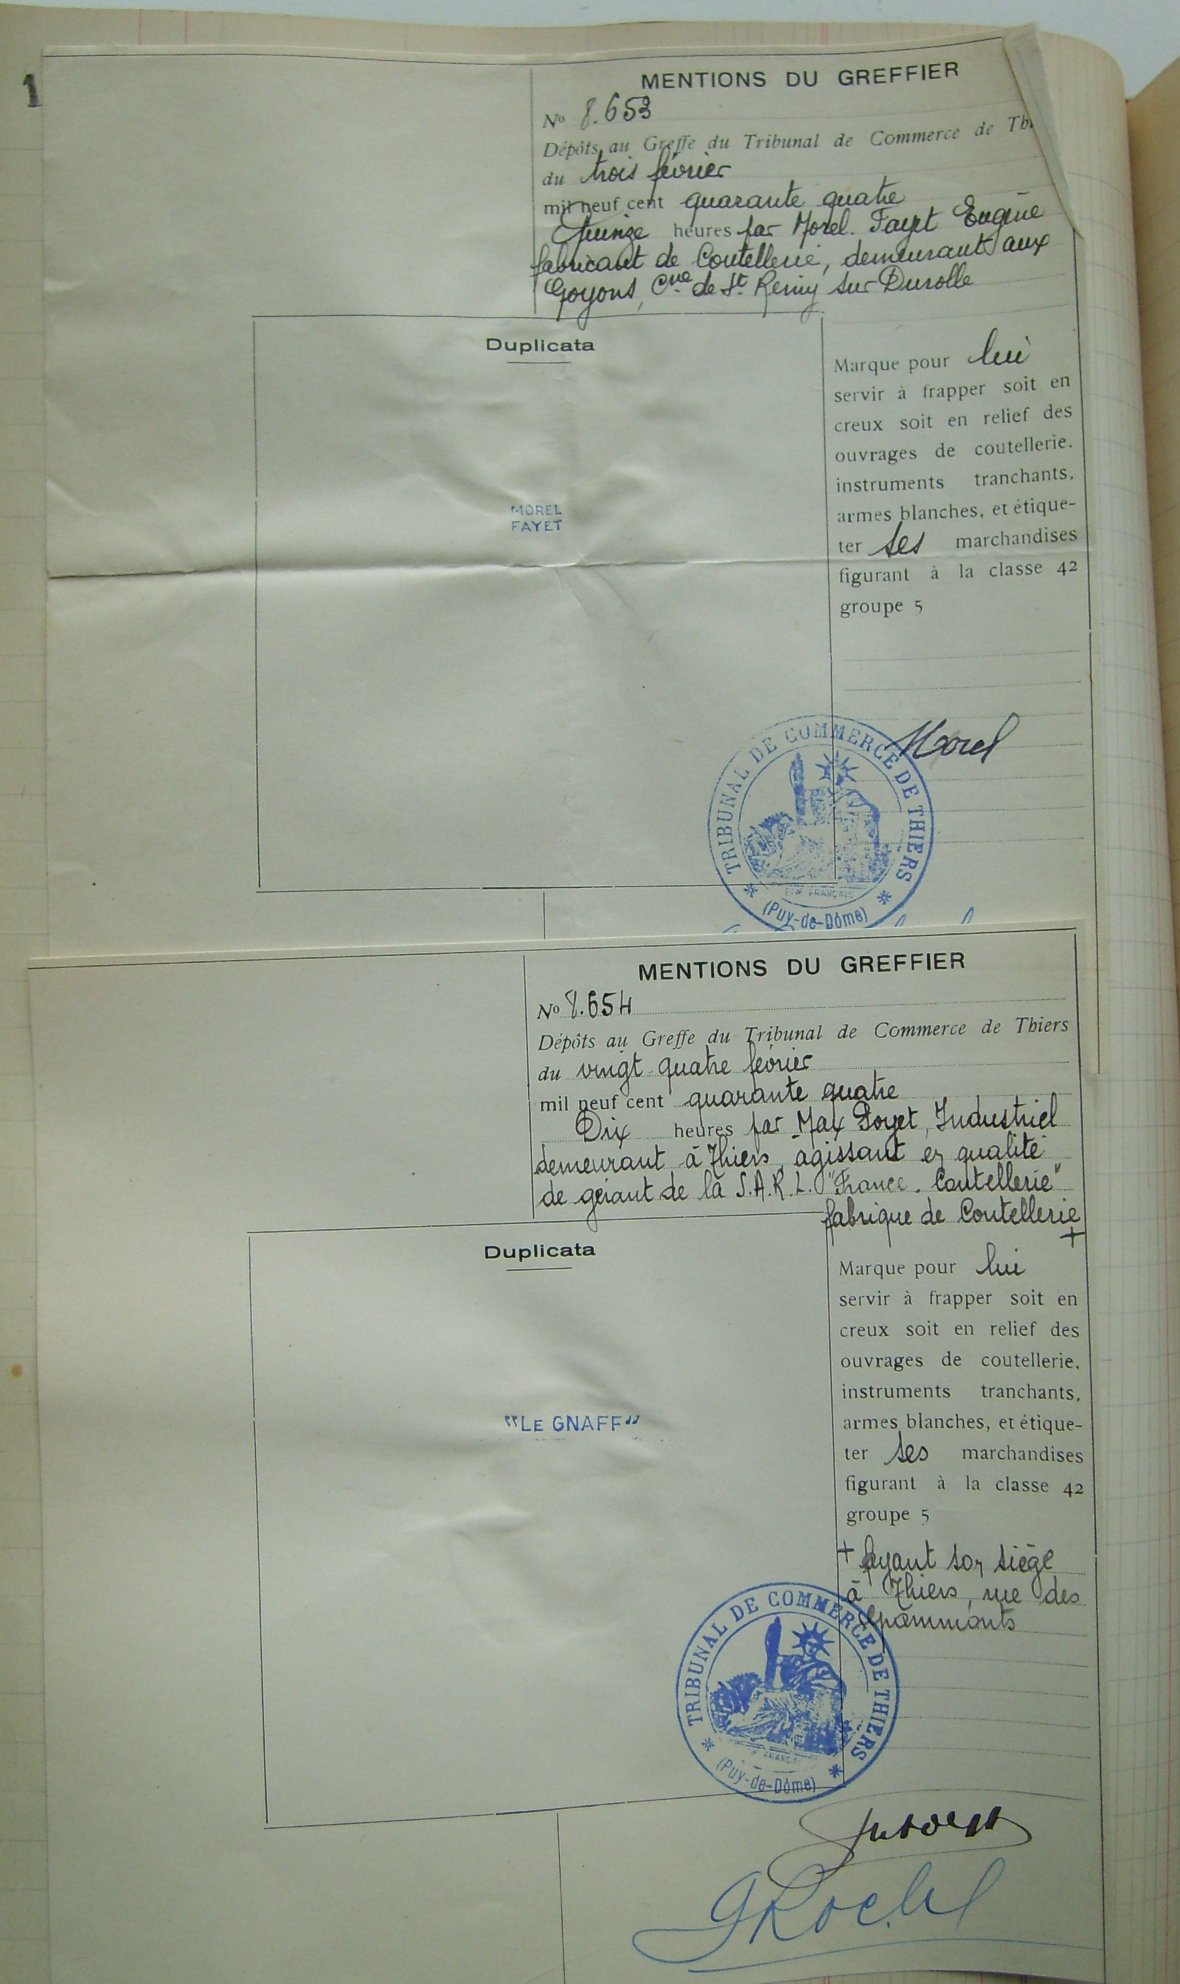 1
MENTIONS DU GREFFIER
No 8.653
Dépôts au Greffe du Tribunal de Commerce de Thi
du trois février
mil neuf cent quarante quatre
Quinze heures par Morel. Fayet Eugène
fabricant de Coutellerie, demeurant aux
Goyons, Cne de St Remy sur Durolle
Duplicata
MOREL
FAYET
Marque pour lui
servir à frapper soit en
creux soit en relief des
ouvrages de coutellerie.
instruments tranchants,
armes blanches, et étique-
ter ses marchandises
figurant à la classe 42
groupe 5
Morel
TRIBUNAL DE COMMERCE DE THIERS
ETAT FRANÇAIS
(Puy-de-Dôme)
MENTIONS DU GREFFIER
No 8.654
Dépôts au Greffe du Tribunal de Commerce de Thiers
du vingt-quatre février
mil neuf cent quarante quatre
Dix heures par Max Poyet, Industriel
demeurant à Thiers, agissant en qualité
de gérant de la S.A.R.L. "France. Coutellerie"
fabrique de Coutellerie
+
Duplicata
"LE GNAFF"
Marque pour lui
servir à frapper soit en
creux soit en relief des
ouvrages de coutellerie.
instruments tranchants,
armes blanches, et étique-
ter ses marchandises
figurant à la classe 42
groupe 5
+ ayant son siège
à Thiers, rue des
Grammonts
TRIBUNAL DE COMMERCE DE THIERS
(Puy-de-Dôme)